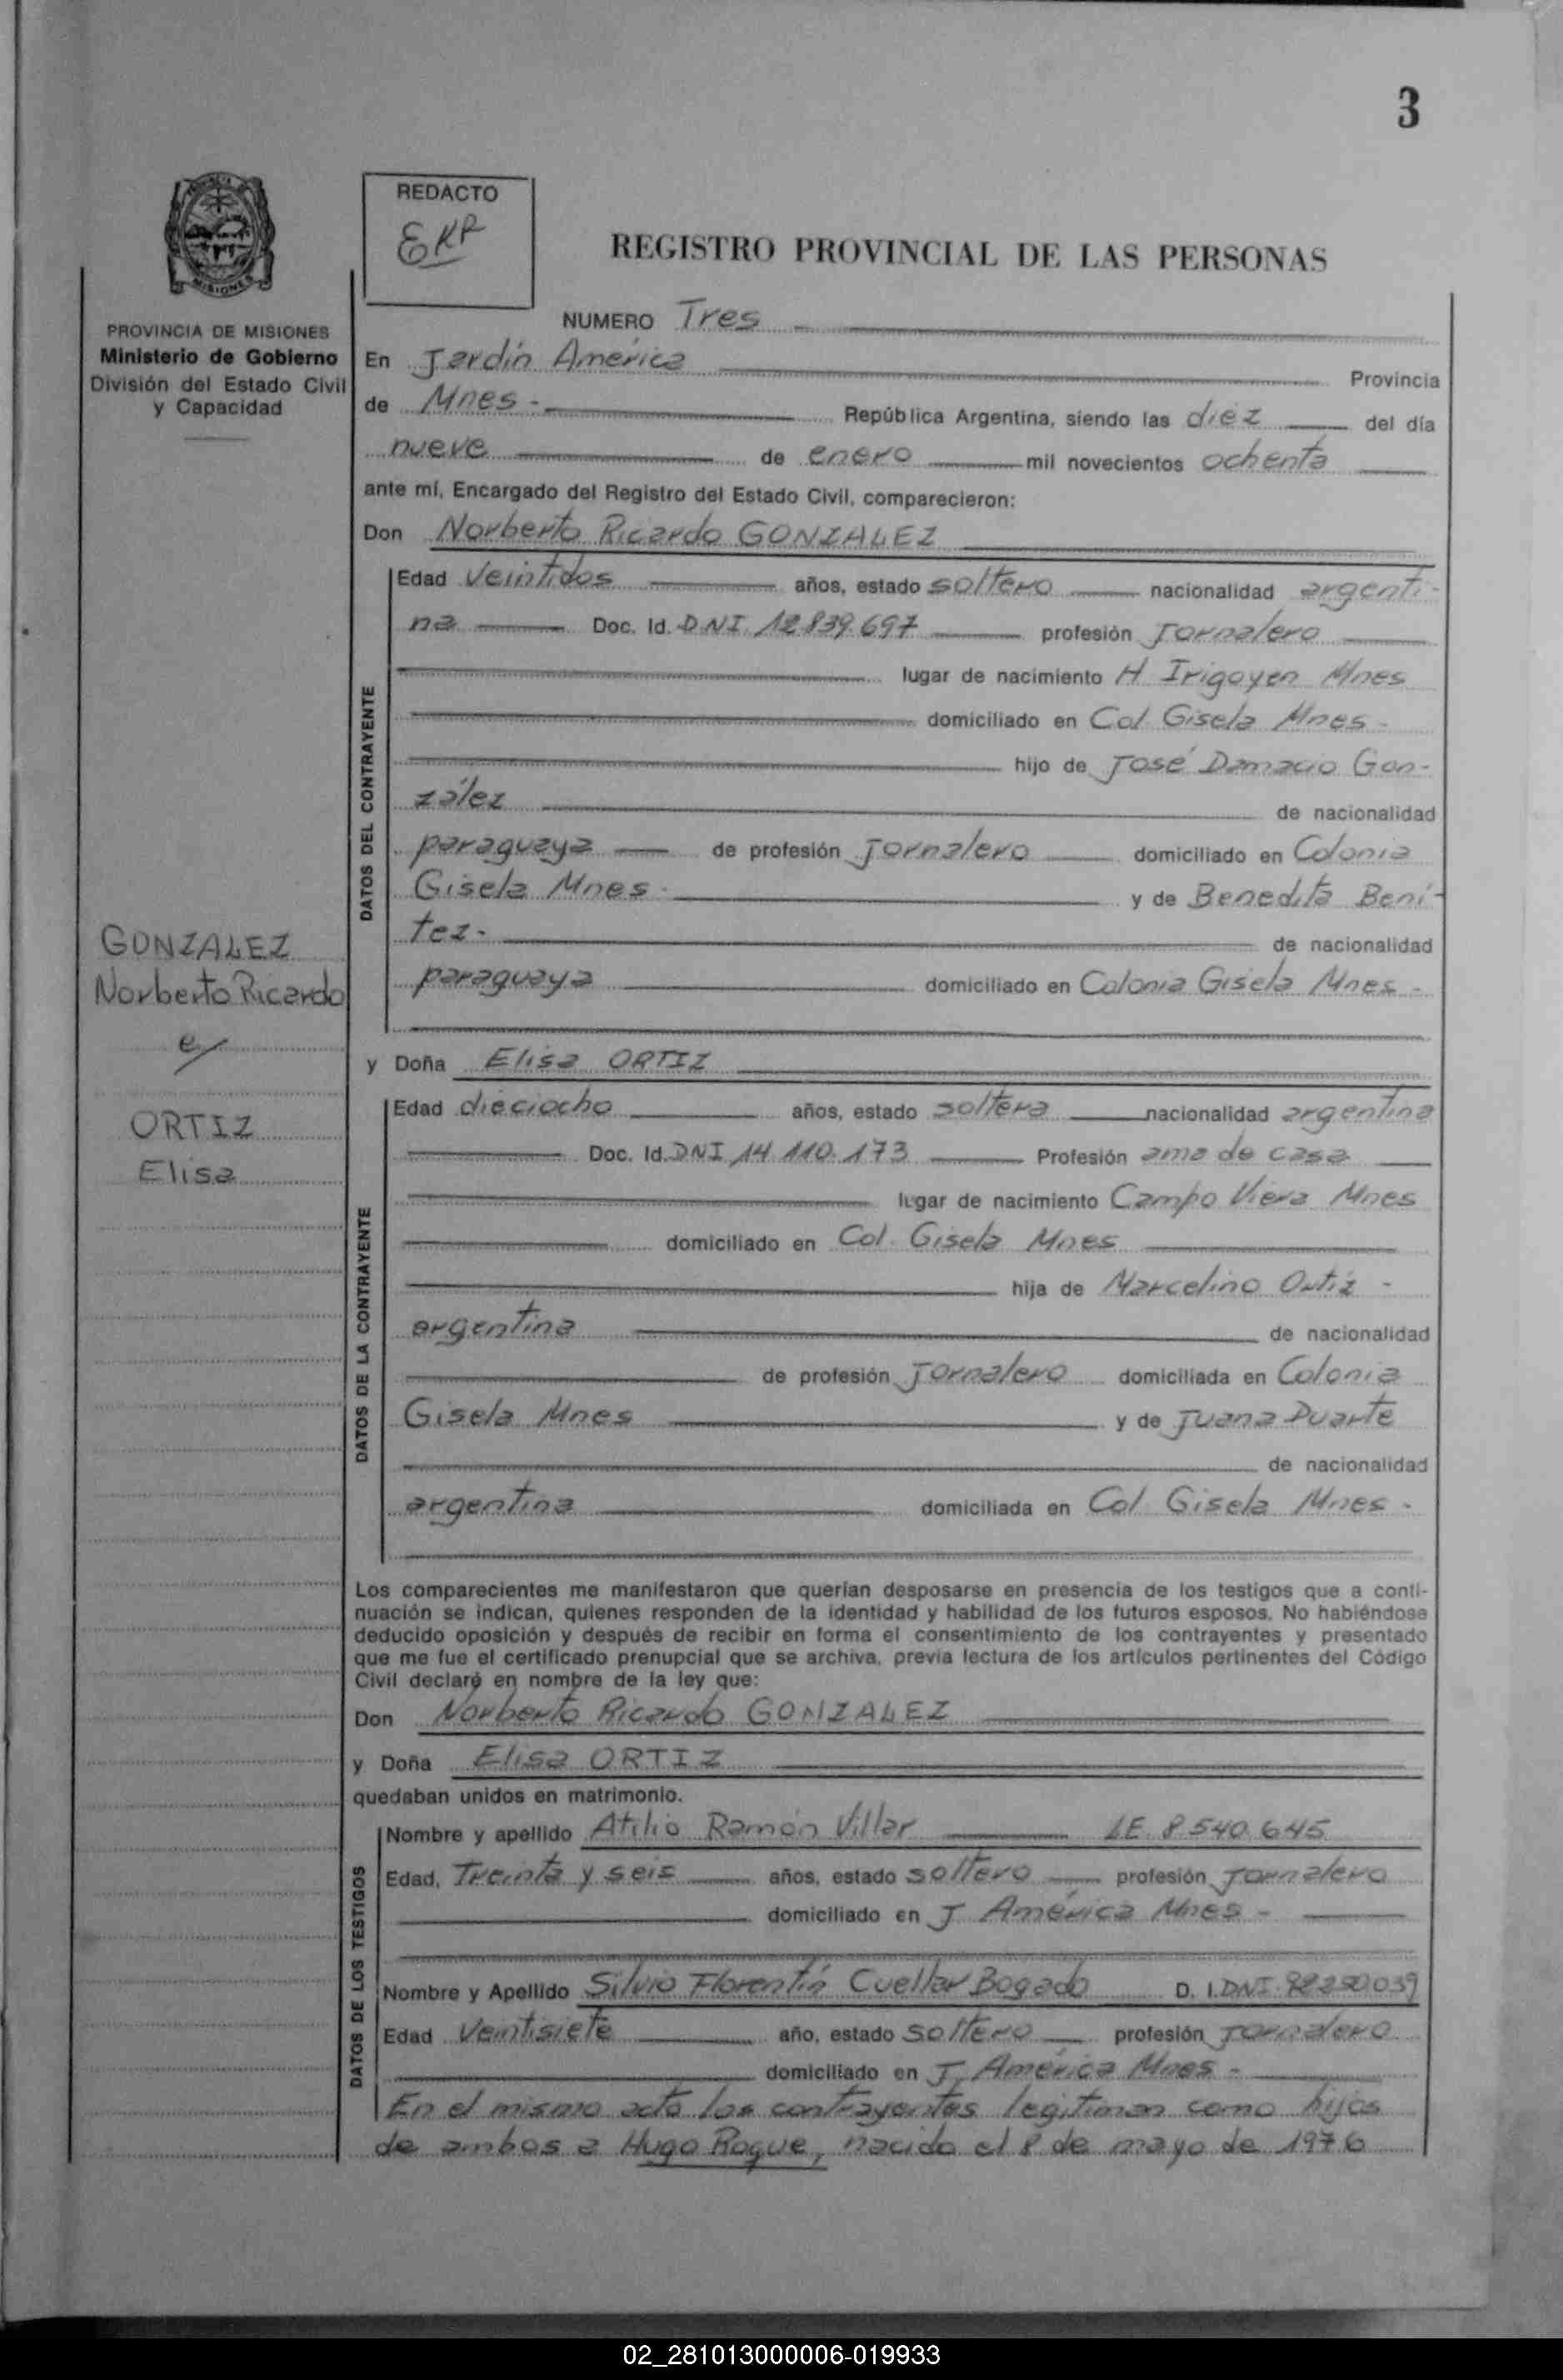 3
REDACTO
EKR
REGISTRO PROVINCIAL DE LAS PERSONAS
MISIONES
PROVINCIA DE MISIONES
Ministerio de Gobierno
División del Estado Civil
y Capacidad
NUMERO Tres
En Jardín América Provincia
de Mnes - República Argentina, siendo las diez del día
nueve de enero mil novecientos ochenta
ante mí, Encargado del Registro del Estado Civil, comparecieron:
Don Norberto Ricardo GONZALEZ
DATOS DEL CONTRAYENTE
Edad Veintidos años, estado soltero nacionalidad argenti-
na Doc. Id. DNI 12.839.697 profesión Jornalero
lugar de nacimiento H Irigoyen Mnes
domiciliado en Col Gisela Mnes -
hijo de José Damacio Gon-
zález de nacionalidad
paraguaya de profesión Jornalero domiciliado en Colonia
Gisela Mnes - y de Benedita Bení-
tez - de nacionalidad
paraguaya domiciliado en Colonia Gisela Mnes -
GONZALEZ
Norberto Ricardo
ORTIZ
Elisa
y Doña Elisa ORTIZ
DATOS DE LA CONTRAYENTE
Edad dieciocho años, estado soltera nacionalidad argentina
Doc. Id. DNI 14 110.173 Profesión ama de casa
lugar de nacimiento Campo Viera Mnes
domiciliado en Col. Gisela Mnes
hija de Marcelino Ortiz -
argentina de nacionalidad
de profesión Jornalero domiciliada en Colonia
Gisela Mnes y de Juana Duarte
de nacionalidad
argentina domiciliada en Col Gisela Mnes -
Los comparecientes me manifestaron que querían desposarse en presencia de los testigos que a conti-
nuación se indican, quienes responden de la identidad y habilidad de los futuros esposos. No habiéndose
deducido oposición y después de recibir en forma el consentimiento de los contrayentes y presentado
que me fue el certificado prenupcial que se archiva, previa lectura de los artículos pertinentes del Código
Civil declaré en nombre de la ley que:
Don Norberto Ricardo GONZALEZ
y Doña Elisa ORTIZ
quedaban unidos en matrimonio.
DATOS DE LOS TESTIGOS
Nombre y apellido Atilio Ramón Villar LE 8.540.645
Edad, Treinta y seis años, estado soltero profesión Jornalero
domiciliado en J América Mnes -
Nombre y Apellido Silvio Florentín Cuellar Bogado D. I. DNI
Edad Veintisiete año, estado soltero profesión Jornalero
domiciliado en J. América Mnes -
En el mismo acto los contrayentes legitiman como hijos
de ambos a Hugo Roque, nacido el 8 de mayo de 1976
02_281013000006-019933